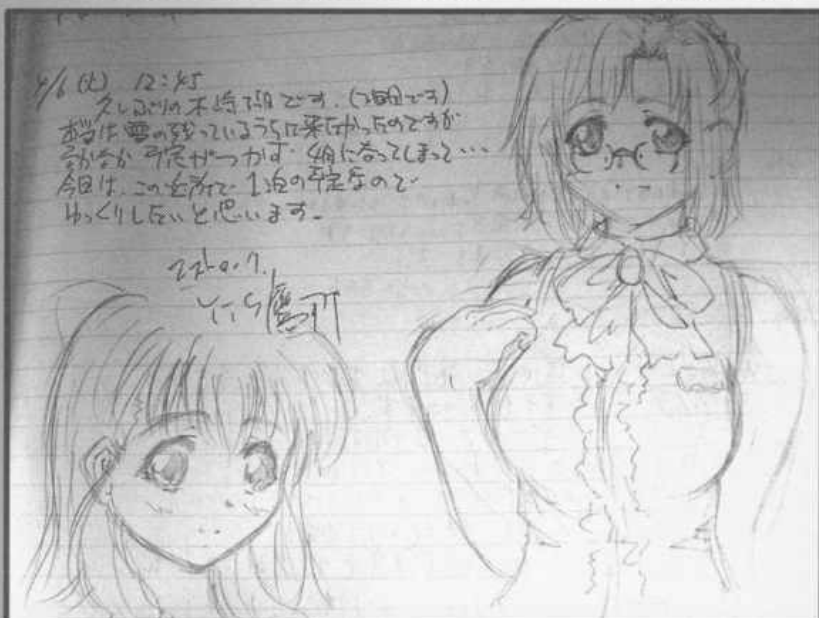 4/6 (火) 12:45
久しぶりの木崎湖です。(2回目です)
本当は雪の残っているうちに来たかったのですが
なかなか予定がつかず、4月になってしまって…
今日は、この近所で1泊の予定なので
ゆっくりしたいと思います。